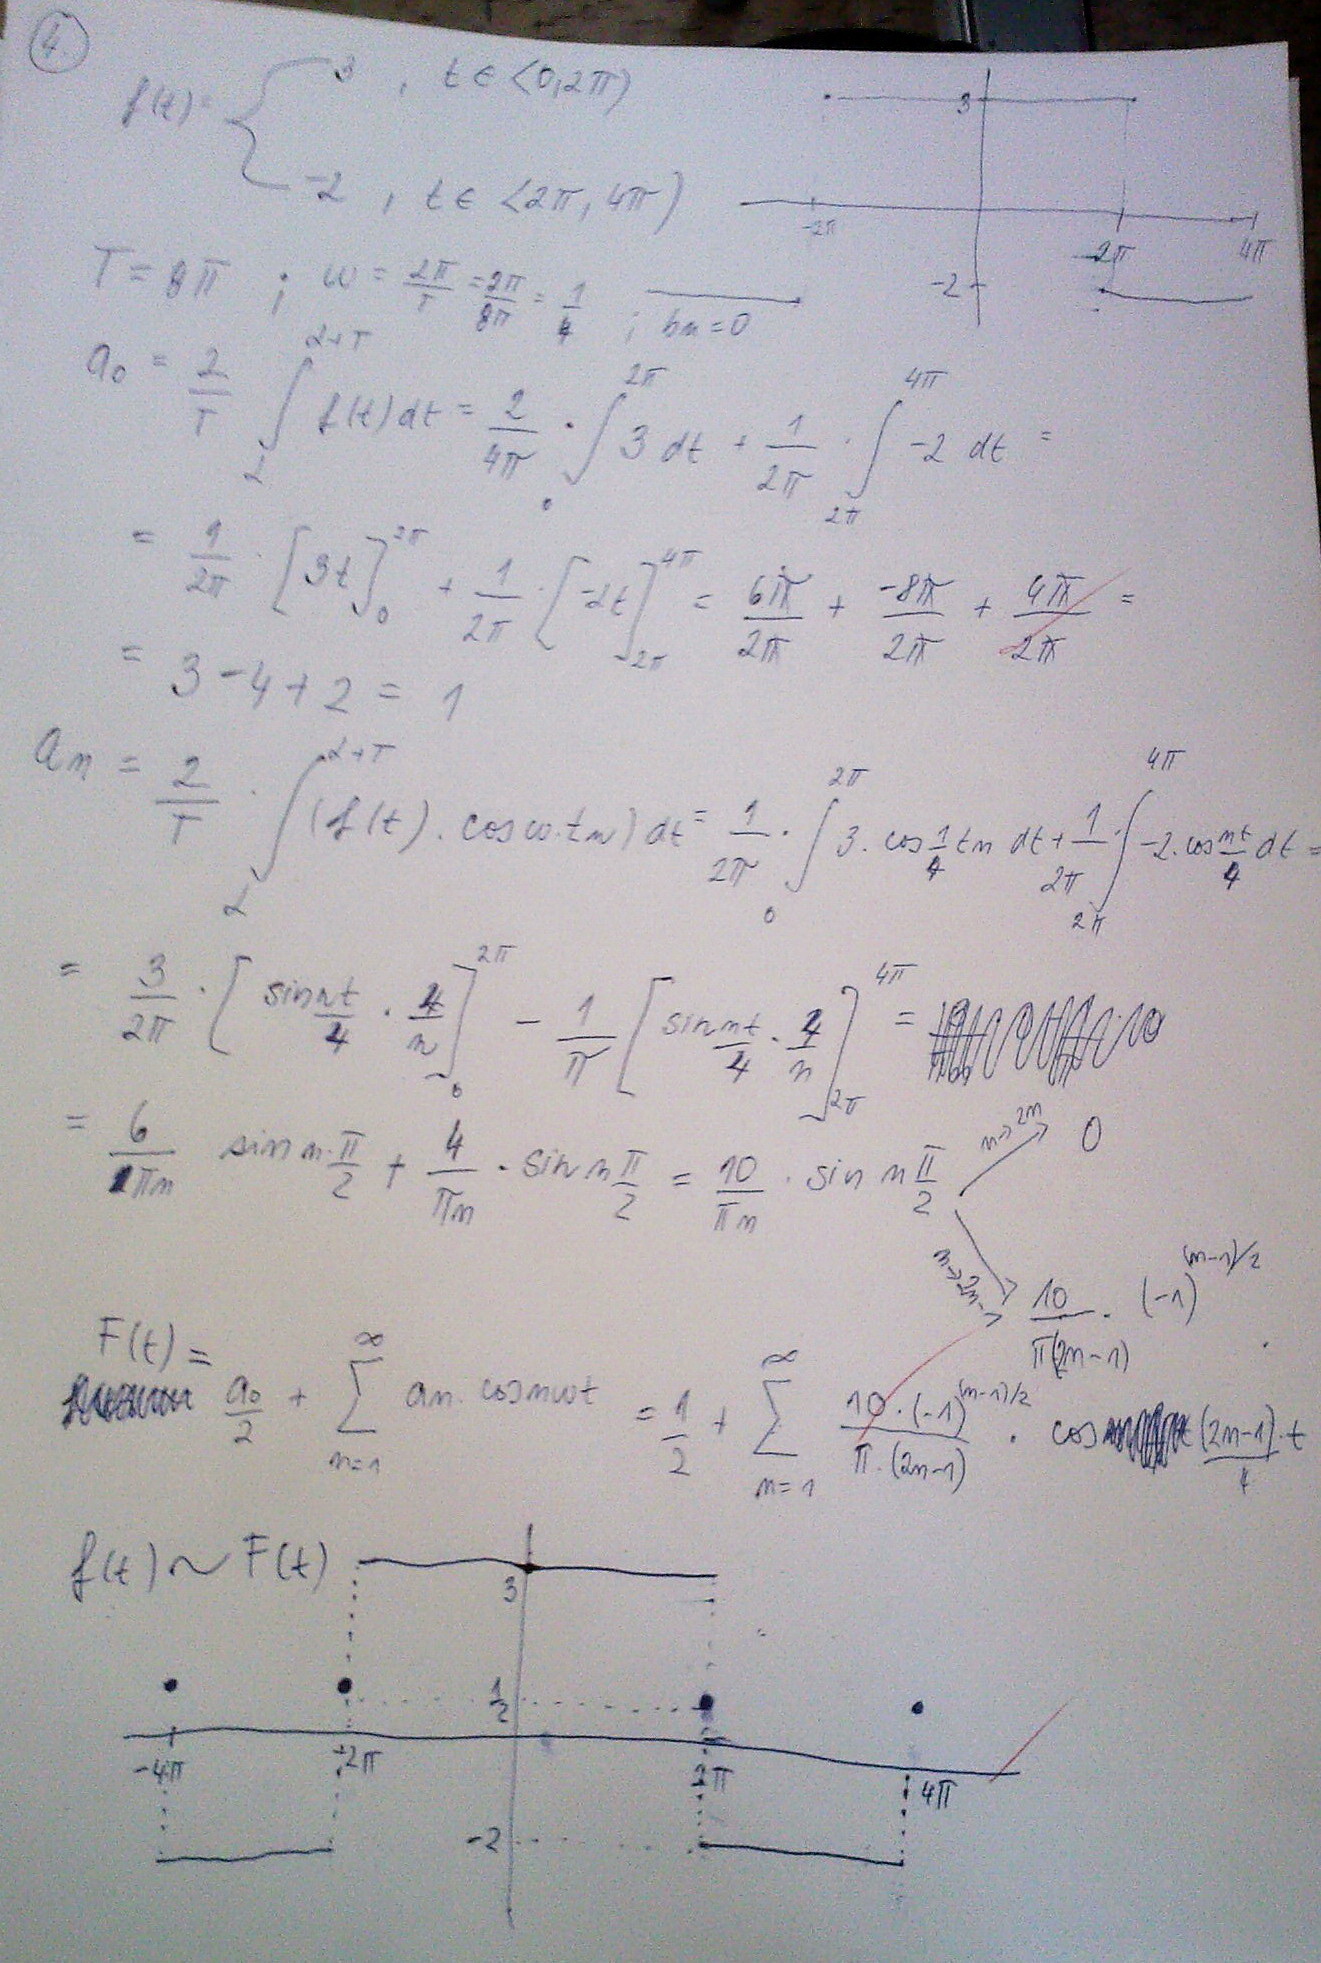 4.
f(t) = { 3 , t ∈ <0,2π)
-2 , t ∈ <2π, 4π)
3
-2π
2π
4π
-2
T = 8π ; ω = 2π/T = 2π/8π = 1/4 ; bn = 0
a0 = 2/T ∫_2^{2+T} f(t) dt = 2/4π · ∫_0^{2π} 3 dt + 1/2π · ∫_{2π}^{4π} -2 dt =
= 1/2π · [3t]_0^{2π} + 1/2π · [-2t]_{2π}^{4π} = 6π/2π + -8π/2π + 4π/2π =
= 3 - 4 + 2 = 1
an = 2/T · ∫_2^{2+T} (f(t) . cos ω.tn) dt = 1/2π · ∫_0^{2π} 3 . cos 1/4 tn dt + 1/2π ∫_{2π}^{4π} -2 . cos nt/4 dt =
= 3/2π · [sin nt/4 · 4/n]_0^{2π} - 1/π [sin nt/4 · 4/n]_{2π}^{4π} =
= 6/πn sin n·π/2 + 4/πn · sin n π/2 = 10/πn · sin n π/2
n→2n
0
n→2n-1
10/π(2n-1) · (-1)^{(n-1)/2}
F(t) =
a0/2 + Σ_{n=1}^{∞} an . cos nωt = 1/2 + Σ_{n=1}^{∞} 10·(-1)^{(n-1)/2}/π.(2n-1) · cos (2n-1)·t/4
f(t) ~ F(t)
3
1/2
-4π
-2π
2π
4π
-2